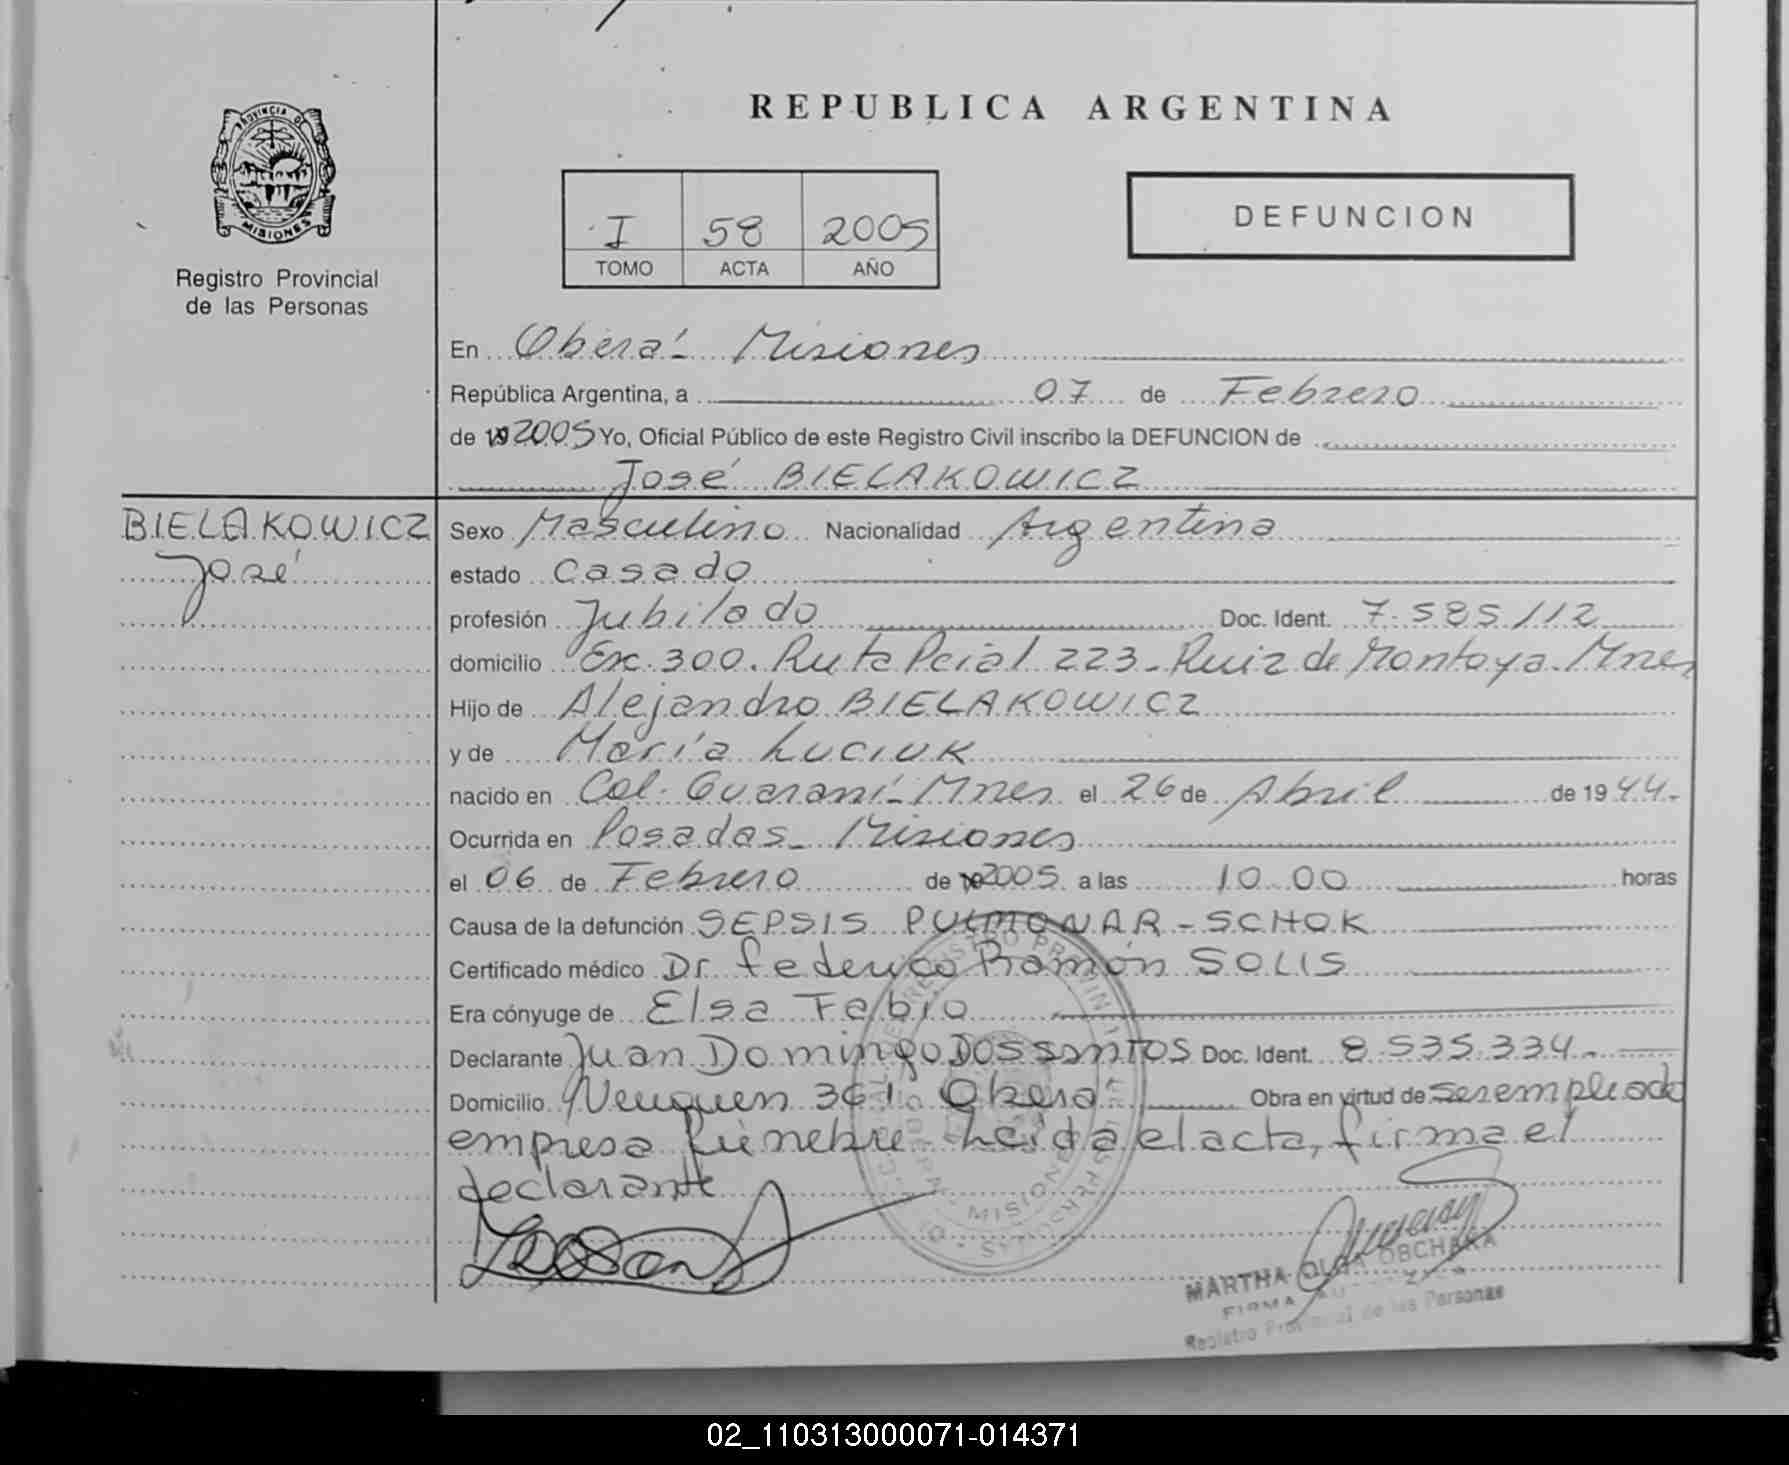 REPUBLICA ARGENTINA
PROVINCIA DE
MISIONES
Registro Provincial
de las Personas
I 58 2005
TOMO ACTA AÑO
DEFUNCION
En Oberá - Misiones
República Argentina, a 07 de Febrero
de 19 2005 Yo, Oficial Público de este Registro Civil inscribo la DEFUNCION de
José BIELAKOWICZ
BIELAKOWICZ
José
Sexo Masculino Nacionalidad Argentina
estado Casado
profesión Jubilado Doc. Ident. 7.585.112
domicilio Ex. 300. Ruta Pcial 223 - Ruiz de Montoya. Mnes
Hijo de Alejandro BIELAKOWICZ
y de María LUCIUK
nacido en Col. Guaraní - Mnes el 26 de Abril de 1944.-
Ocurrida en Posadas - Misiones
el 06 de Febrero de 2005 a las 10 00 horas
Causa de la defunción SEPSIS PULMONAR - SCHOK
Certificado médico Dr Federico Ramón SOLIS
Era cónyuge de Elsa Fabio
Declarante Juan Domingo Dos santos Doc. Ident. 8.535.334.-
Domicilio Neuquen 361 Oberá Obra en virtud de ser empleado
empresa fúnebre Leída el acta, firma el
declarante
MARTHA OLGA OBCHARA
FIRMA
Registro Provincial de las Personas
02_110313000071-014371